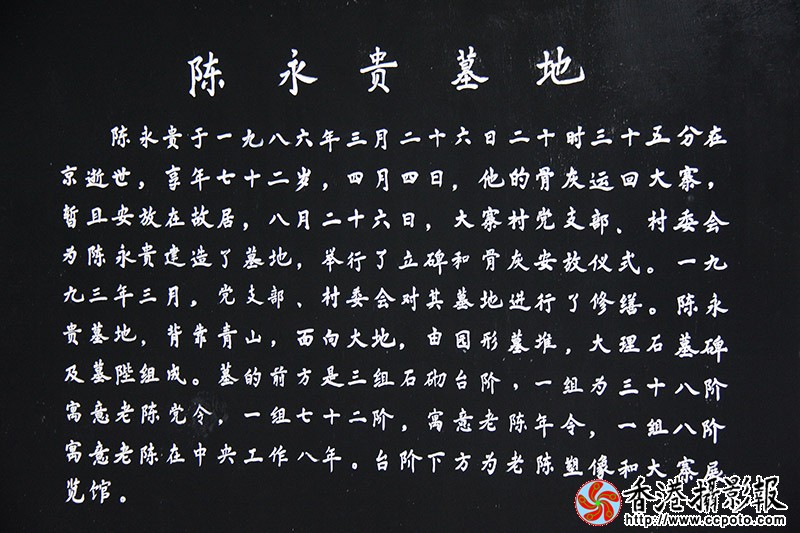 陈永贵墓地
陈永贵于一九八六年三月二十六日二十时三十五分在
京逝世，享年七十二岁，四月四日，他的骨灰运回大寨，
暂且安放在故居，八月二十六日，大寨村党支部、村委会
为陈永贵建造了墓地，举行了立碑和骨灰安放仪式。一九
九三年三月，党支部、村委会对其墓地进行了修缮。陈永
贵墓地，背靠青山，面向大地，由园形墓堆，大理石墓碑
及墓陛组成。墓的前方是三组石砌台阶，一组为三十八阶
寓意老陈党令，一组七十二阶，寓意老陈年令，一组八阶
寓意老陈在中央工作八年。台阶下方为老陈塑像和大寨展
览馆。
香港攝影報
http://www.ccpoto.com/